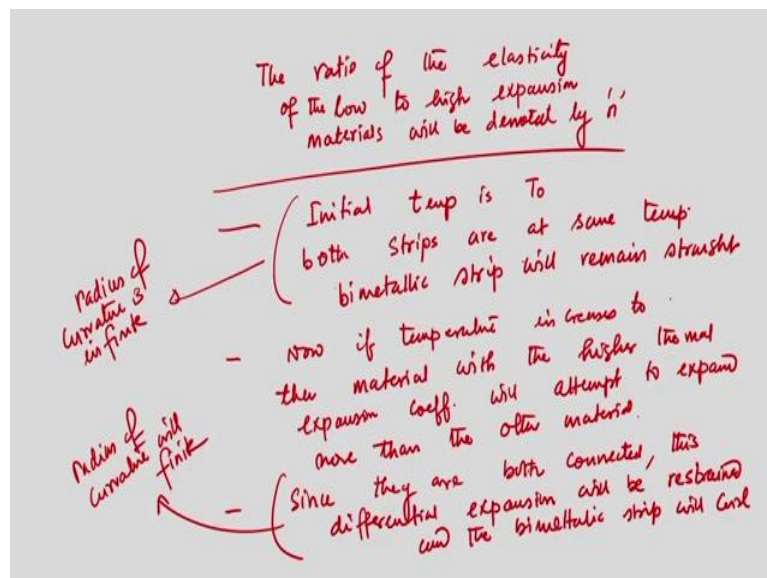 The ratio of the elasticity
of the low to high expansion
materials will be denoted by 'n'
Initial temp is To
both strips are at same temp.
bimetallic strip will remain straight
radius of
curvature is
infinite
- Now if temperature increases to
then material with the higher thermal
expansion coeff. will attempt to expand
more than the other material.
radius of
curvature will
finite
- Since they are both connected, this
differential expansion will be restrained
and the bimettalic strip will curl